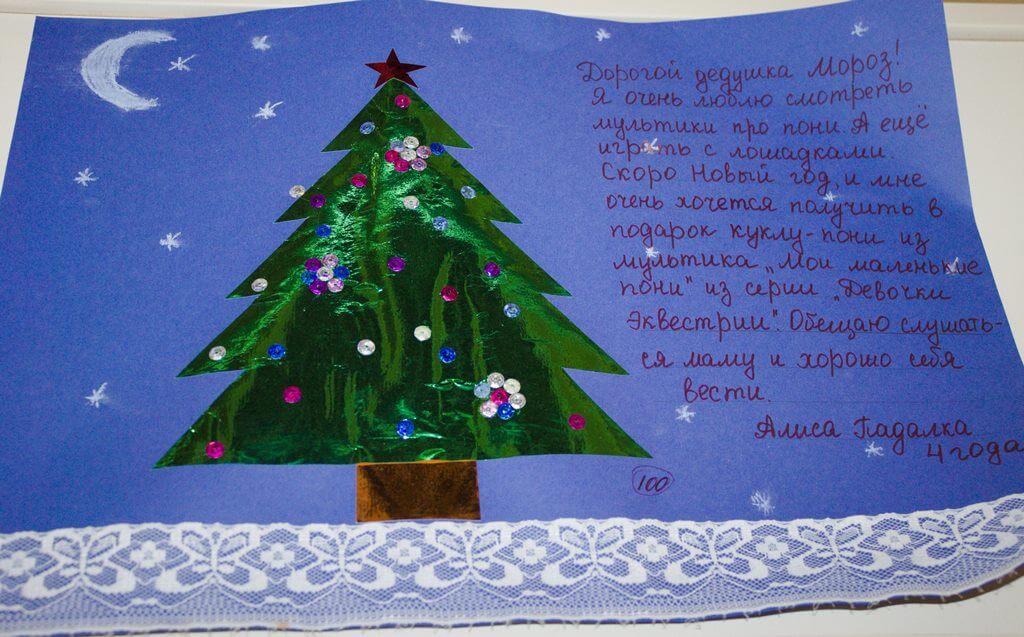 Дорогой дедушка Мороз!
Я очень люблю смотреть
мультики про пони. А ещё
играть с лошадками.
Скоро Новый год, и мне
очень хочется получить в
подарок куклу-пони из
мультика „Мои маленькие
пони" из серии „Девочки
Эквестрии". Обещаю слушать-
ся маму и хорошо себя
вести.
Алиса Падалка
4 года
100